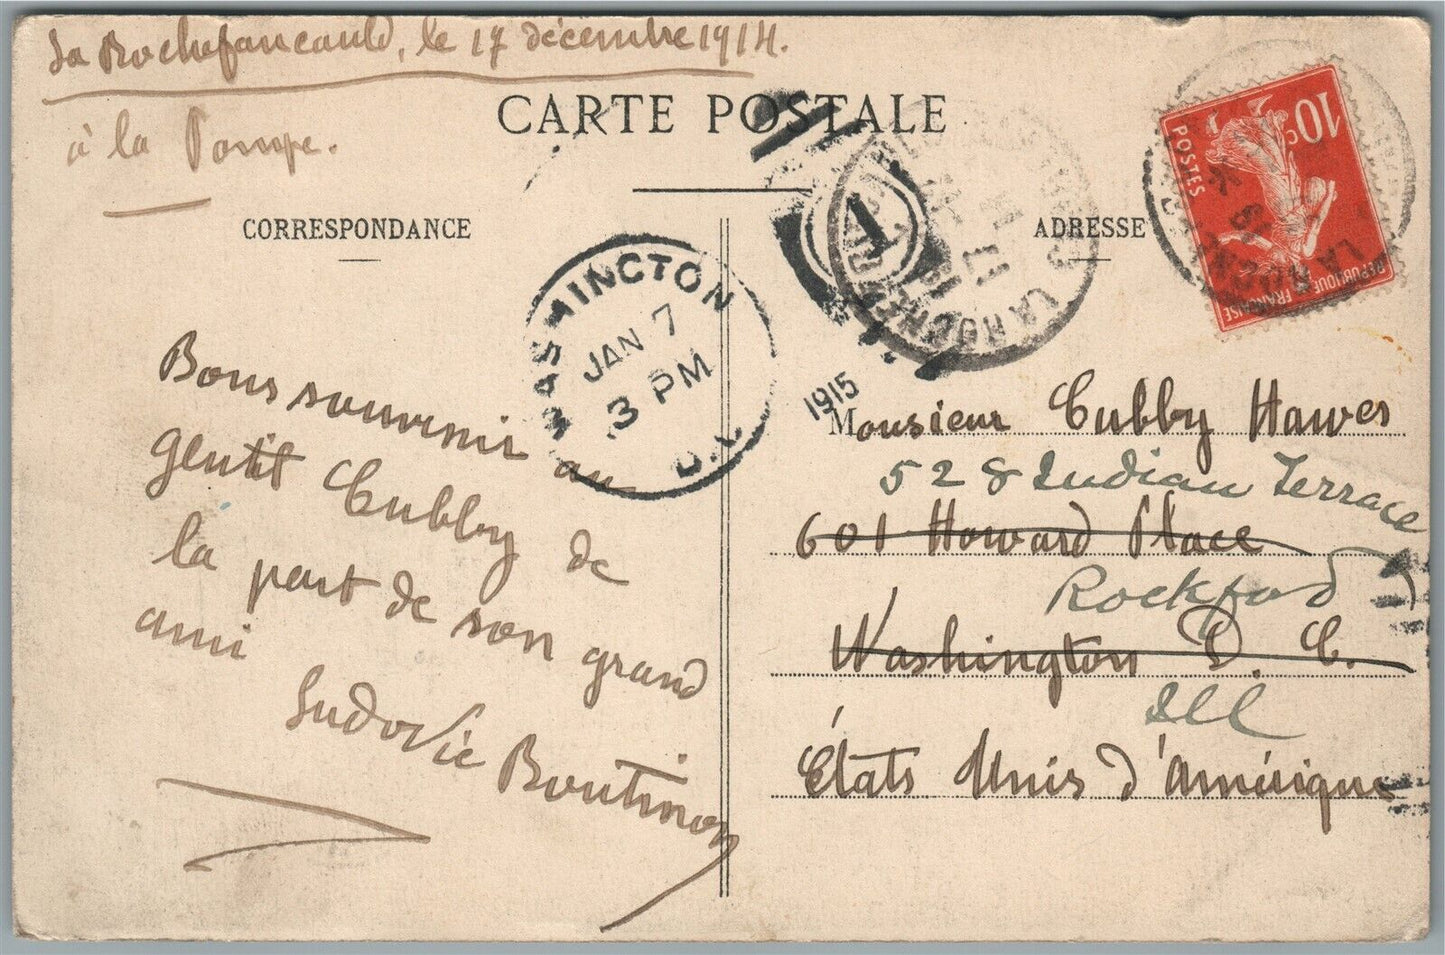 La Rochefoucauld, le 17 décembre 1914.
à la Pompe.
CARTE POSTALE
CORRESPONDANCE
ADRESSE
10c
POSTES
REPUBLIQUE FRANÇAISE
1
WASHINGTON
JAN 7
3 PM
D.C.
1915
Bons souvenir au
gentil Cubby de
la part de son grand
ami
Ludovic Boutinon
Monsieur Cubby Hawes
528 Indian Terrace
601 Howard Place
Rockford
Washington D. C.
Ill
États Unis d'Amérique